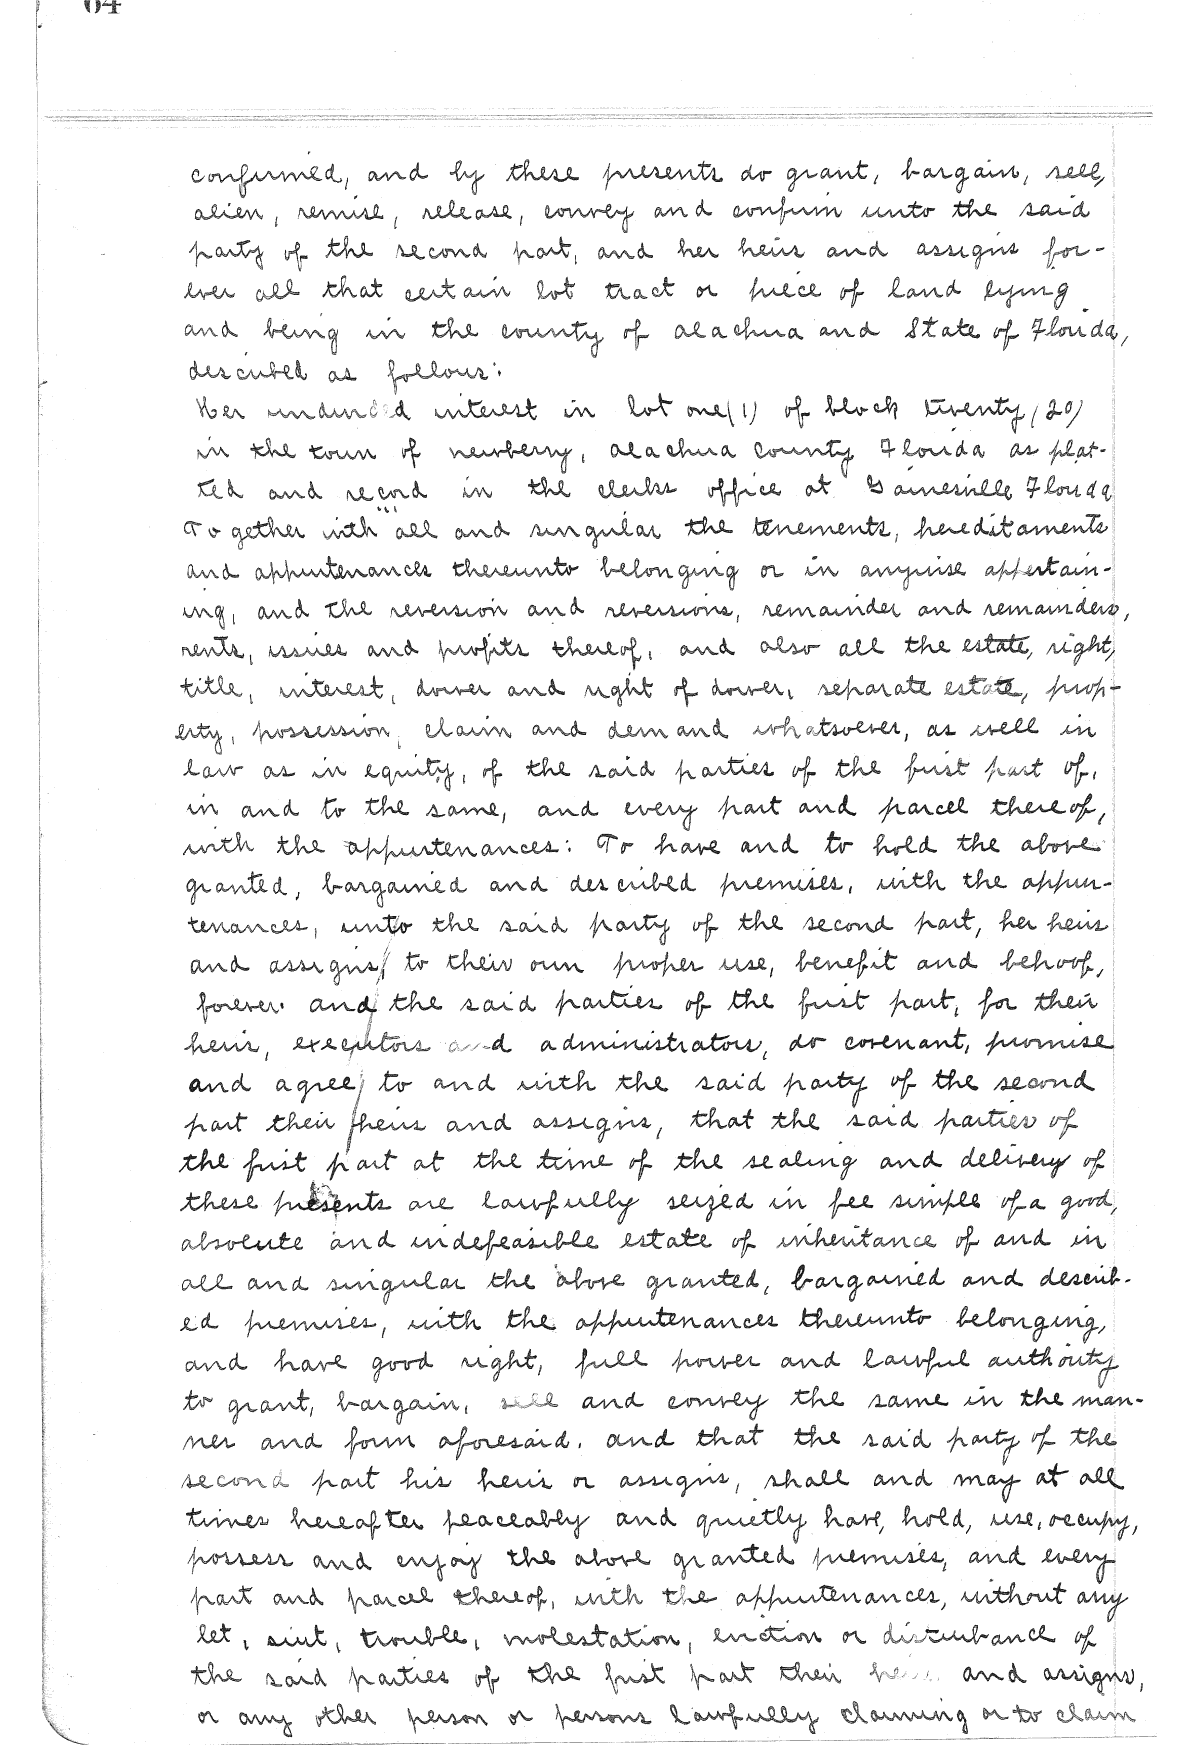 64
confirmed, and by these presents do grant, bargain, sell,
alien, remise, release, convey and confirm unto the said
party of the second part, and her heirs and assigns for-
ever all that certain lot tract or piece of land lying
and being in the county of alachua and State of Florida,
described as follows:
Her undivided interest in lot one (1) of block twenty (20)
in the town of newberry, alachua county Florida as plat-
ted and record in the clerks office at Gainesville Florida
Together with all and singular the tenements, hereditaments
and appurtenances thereunto belonging or in anywise appertain-
ing, and the reversion and reversions, remainder and remainders,
rents, issues and profits thereof, and also all the estate, right,
title, interest, dower and right of dower, separate estate, prop-
erty, possession, claim and demand whatsoever, as well in
law as in equity, of the said parties of the first part of,
in and to the same, and every part and parcel thereof,
with the appurtenances: To have and to hold the above
granted, bargained and described premises, with the appur-
tenances, unto the said party of the second part, her heirs
and assigns, to their own proper use, benefit and behoof,
forever. and the said parties of the first part, for their
heirs, executors and administrators, do covenant, promise
and agree, to and with the said party of the second
part their heirs and assigns, that the said parties of
the first part at the time of the sealing and delivery of
these presents are lawfully seized in fee simple of a good,
absolute and indefeasible estate of inheritance of and in
all and singular the above granted, bargained and describ-
ed premises, with the appurtenances thereunto belonging,
and have good right, full power and lawful authority
to grant, bargain, sell and convey the same in the man-
ner and form aforesaid. and that the said party of the
second part his heirs or assigns, shall and may at all
times hereafter peaceably and quietly have, hold, use, occupy,
possess and enjoy the above granted premises, and every
part and parcel thereof, with the appurtenances, without any
let, suit, trouble, molestation, eviction or disturbance of
the said parties of the first part their heirs and assigns,
or any other person or persons lawfully claiming or to claim